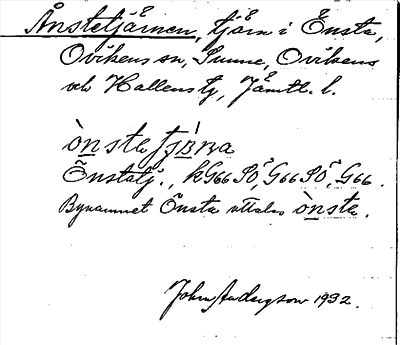 Ånstetjärnen, tjärn i Ensta,
Ovikens sn, Sunne, Ovikens
och Hallens tg, Jämtl. l.
ònsta tjæ̀rna
Önstatj., kG66 SÖ, G66 SÖ, G66.
Bynamnet Önsta uttalas ònsta.
John Anderzson 1932.